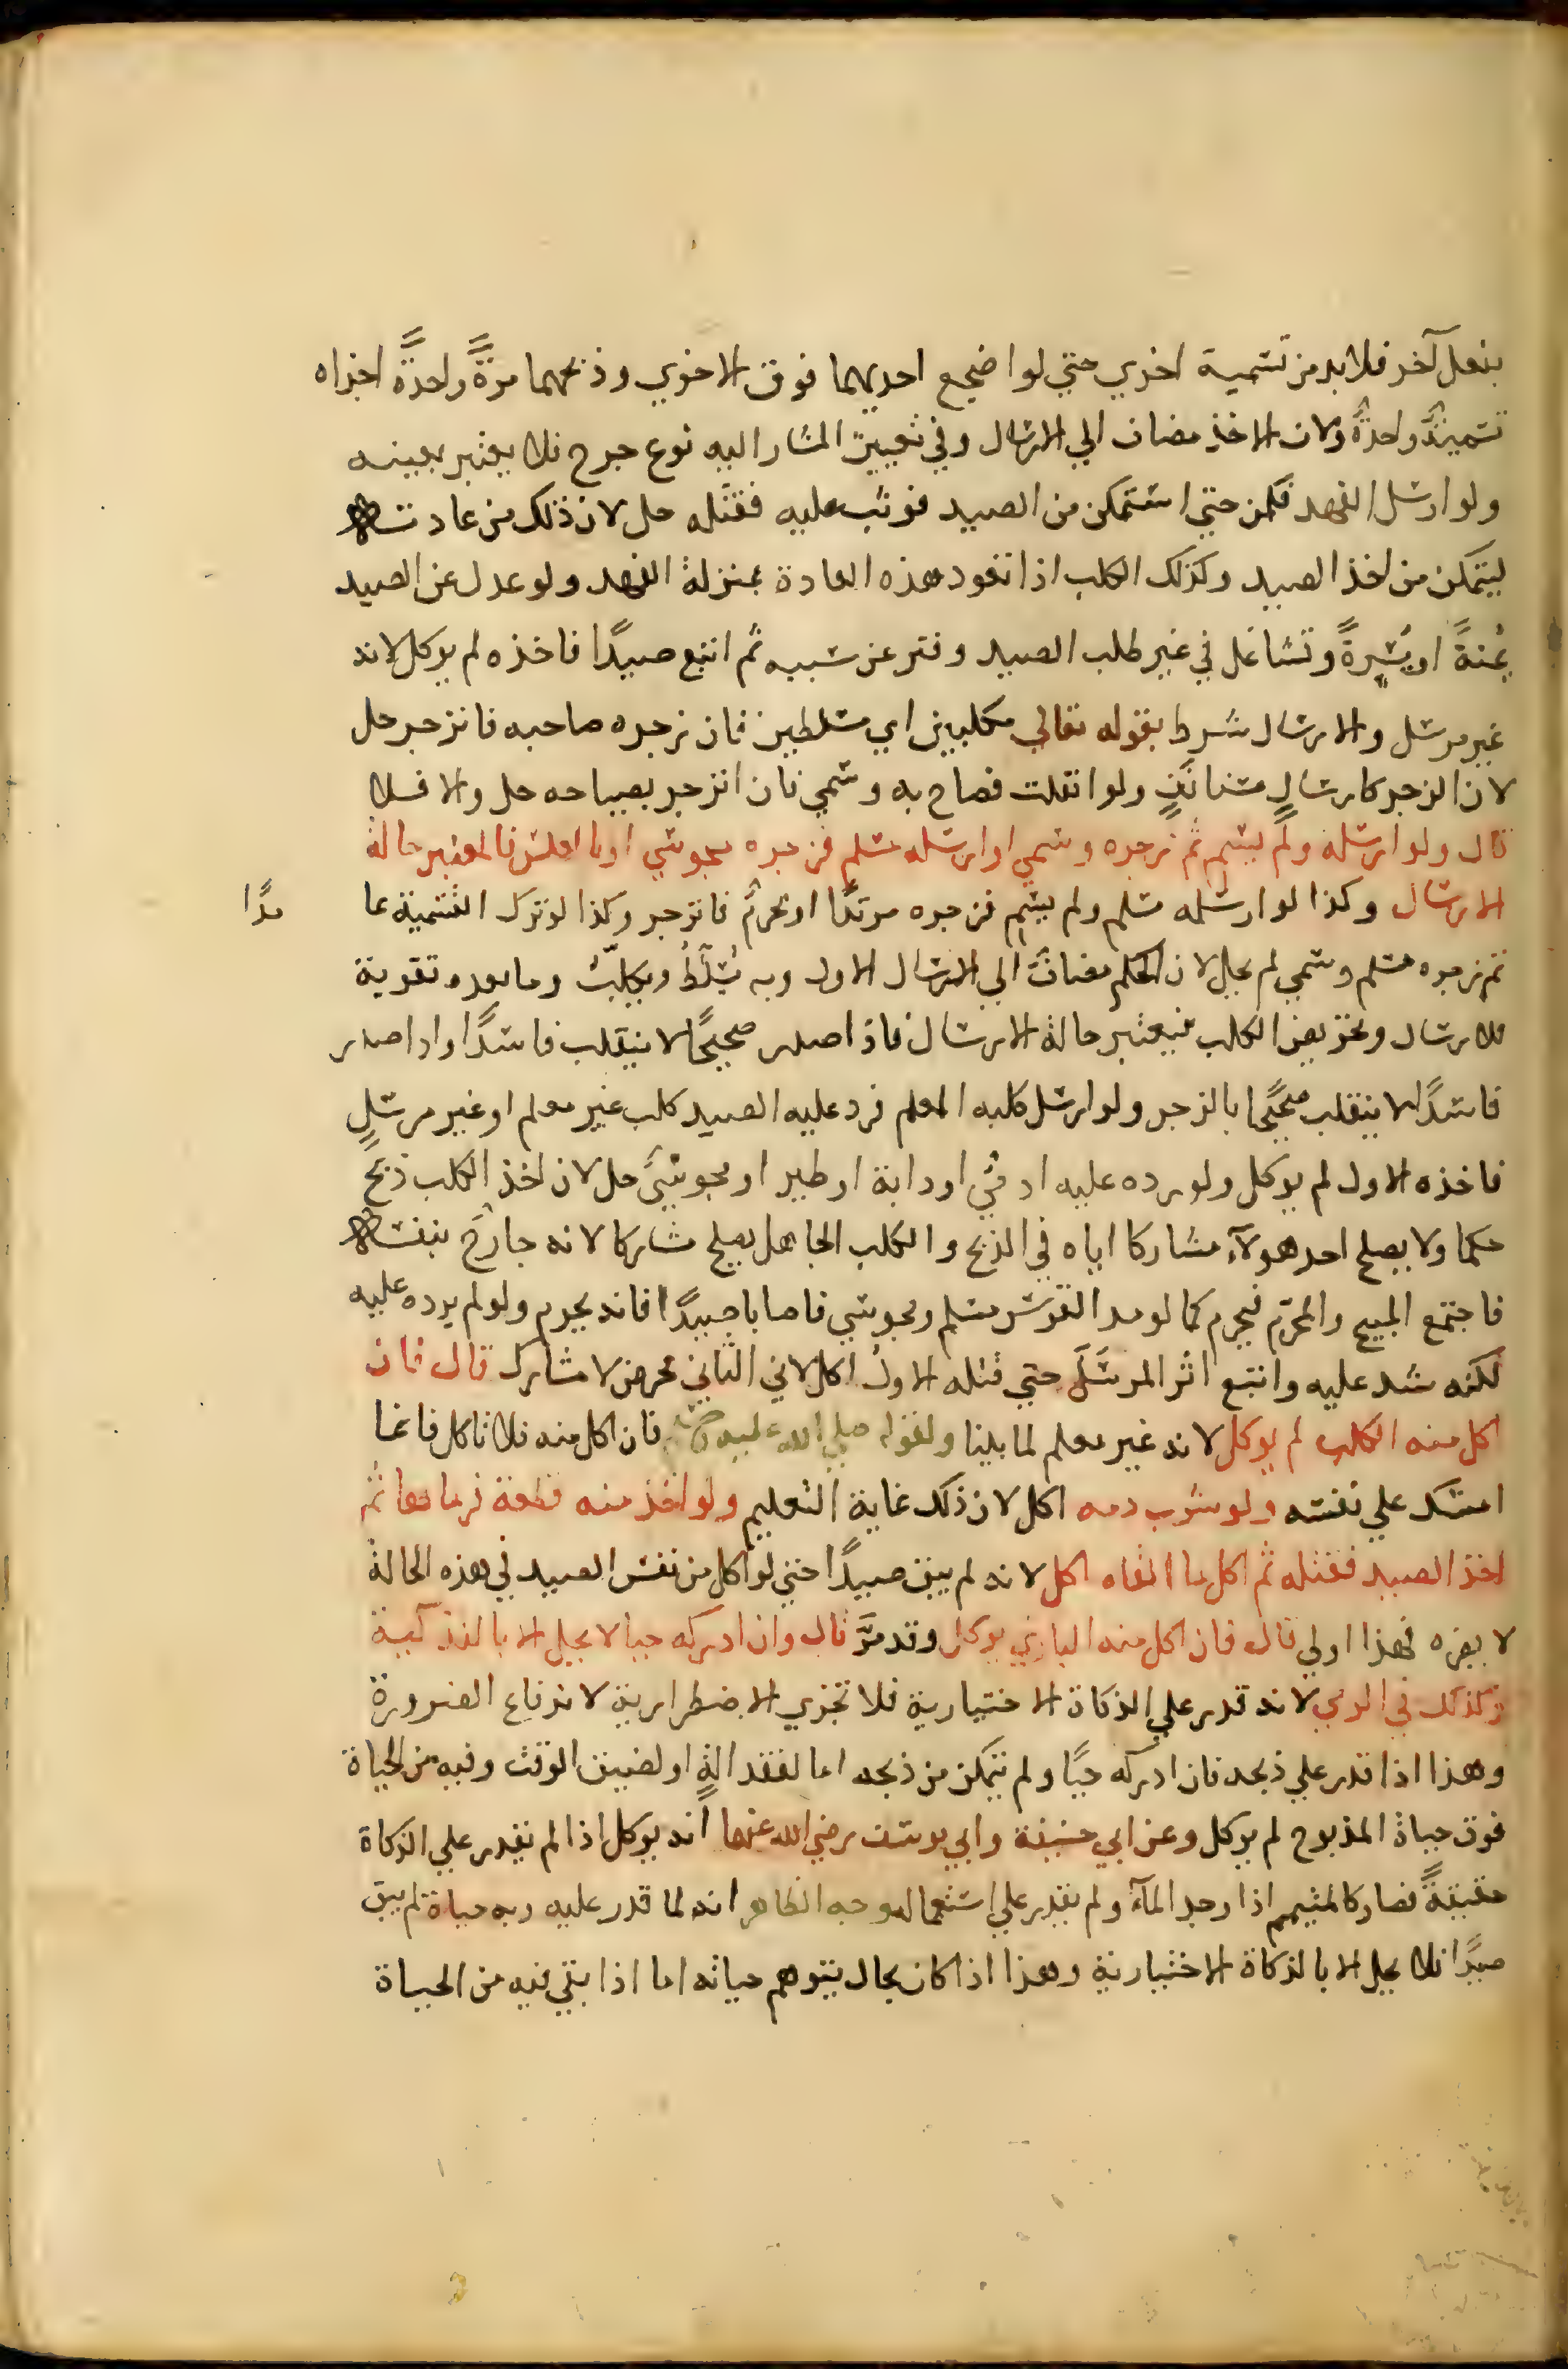 بفعل آخر فلا بد من تسمية اخري حتي لو اضجع احديهما فوق الاخري وذبحهما مرةً واحدةً اجزاه
تسميةٌ واحدةٌ ولان الاخذ مضاف الي الارسال وفي تعيين المشار اليه نوع حرج فلا يعتبر بعينه
ولو ارسل الفهد فكمن حتي استمكن من الصيد فوثب عليه فقتله حل لان ذلك من عادته
ليتمكن من اخذ الصيد وكذلك الكلب اذا تعود هذه العادة بمنزلة الفهد ولو عدل عن الصيد
يمنةً او يسرةً وتشاغل في غير طلب الصيد وفتر عن سببه ثم اتبع صيدًا فاخذه لم يوكل لانه
غير مرسل والارسال شرط بقوله تعالي مكلبين اي مسلطين فان زجره صاحبه فانزجر حل
لان الزجر كارسالٍ مستانفٍ ولو انفلت فصاح به وسمي فان انزجر بصياحه حل والا فلا
قال ولو ارسله ولم يسم ثم زجره وسمي او ارسله مسلم فزجره مجوسي او بالعكس فالمعتبر حالة
الارسال وكذا لو ارسله مسلم ولم يسم فزجره مرتدًا او محرم فانزجر وكذا لو ترك التسمية عا مدًا
ثم زجره مسلم وسمي لم يحل لان الحكم مضاف الي الارسال الاول وبه تسلطُ وتكلبُ وما بعده تقوية
للارسال وتحريض الكلب فيعتبر حالة الارسال فاذا صدر صحيحًا لا ينقلب فاسدًا واذا صدر
فاسدًا لا ينقلب صحيحًا بالزجر ولو ارسل كلبه المعلم فرد عليه الصيد كلب غير معلم او غير مرسلٍ
فاخذه الاول لم يوكل ولو رده عليه ادمي او دابة او طير او مجوسي حل لان اخذ الكلب ذبح
حكما ولا يصلح احد هولآء مشاركا اياه في الذبح والكلب الجاهل يصلح مشاركا لانه جارح بنفسه
فاجتمع المبيح والمحرم فيحرم كما لو مد القوس مسلم ومجوسي فاصابا صيدًا فانه يحرم ولو لم يرده عليه
لكنه شد عليه واتبع اثر المرسَل حتي قتله الاول اكل لان الثاني محرض لا مشارك قال فان
اكل منه الكلب لم يوكل لانه غير معلم لما بينا ولقوله صلي الله عليه فان اكل منه فلا تاكل فانما
امسك علي نفسه ولو شرب دمه اكل لان ذلك غاية التعليم ولو اخذ منه قطعة فرماها ثم
اخذ الصيد فقتله ثم اكل ما القاه اكل لانه لم يبق صيدًا حتي لو اكل من نفس الصيد في هذه الحالة
لا يضره فهذا اولي قال فان اكل منه البازي يوكل وقد مرَّ قال وان ادركه حيا لا يحل الا بالتذكية
وكذلك في الرمي لانه قدر علي الذكاة الاختيارية فلا تجزي الاضطرارية لاندفاع الضرورة
وهذا اذا قدر علي ذبحه فان ادركه حيًا ولم يتمكن من ذبحه اما لفقد الةٍ او لضيق الوقت وفيه من الحياة
فوق حياة المذبوح لم يوكل وعن ابي حنيفة وابي يوسف رضي الله عنهما انه يوكل اذا لم يقدر علي الذكاة
حقيقةً فصار كالمتيمم اذا وجد المآء ولم يقدر علي استعماله وجه الظاهر انه لما قدر عليه وبه حياة لم يبق
صيدًا فلا يحل الا بالذكاة الاختيارية وهذا اذا كان بحال يتوهم حياته اما اذا بقي فيه من الحياة